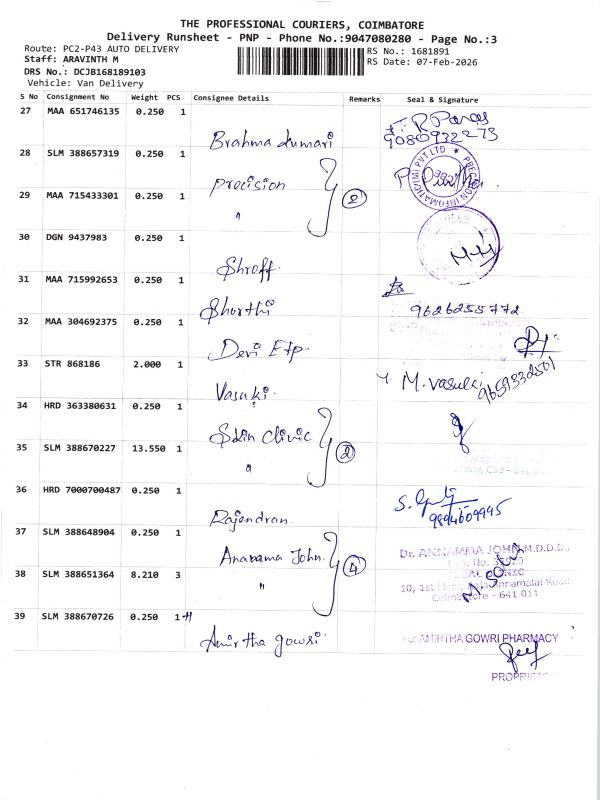 THE PROFESSIONAL COURIERS, COIMBATORE
Delivery Runsheet - PNP - Phone No.:9047080280 - Page No.:3
Route: PC2-P43 AUTO DELIVERY
RS No.: 1681891
Staff: ARAVINTH M
RS Date: 07-Feb-2026
DRS No.: DCJB168189103
Vehicle: Van Delivery
S No Consignment No Weight PCS Consignee Details Remarks Seal & Signature
27 MAA 651746135 0.250 1
Brahma kumari
9080932273
28 SLM 388657319 0.250 1
Precision 2
PRECISION INFOMATIC(M) PVT LTD
29 MAA 715433301 0.250 1
"
30 DGN 9437983 0.250 1
Shroff
31 MAA 715992653 0.250 1
Shorthi
9626255772
32 MAA 304692375 0.250 1
Devi Etp
33 STR 868186 2.000 1
Vasuki
M. Vasuki
9659332501
34 HRD 363380631 0.250 1
Skin clinic 2
35 SLM 388670227 13.550 1
"
36 HRD 7000700487 0.250 1
Rajendran
9894609995
37 SLM 388648904 0.250 1
Anamma John 4
Dr. ANNAMMA JOHN, M.D.D.D.,
38 SLM 388651364 8.210 3
"
Coimbatore - 641 011
39 SLM 388670726 0.250 1
Amirtha gowri
For AMIRTHA GOWRI PHARMACY